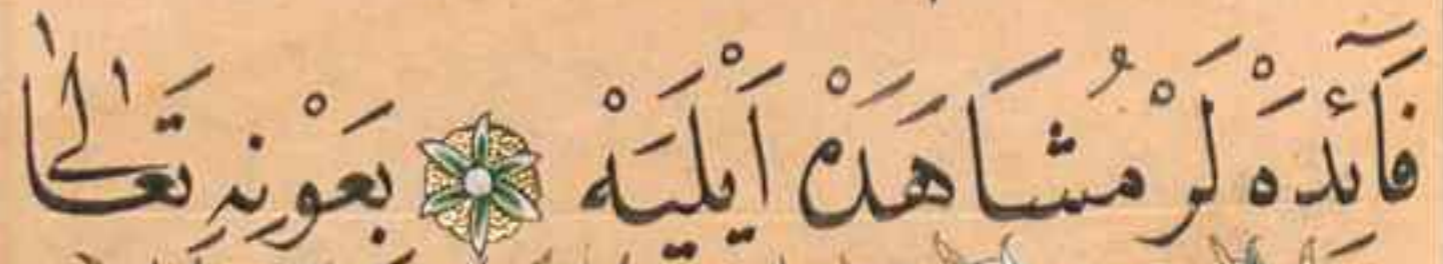 فَآئِدَهْ لَرْ مُشَاهَدَهْ اَيْلِيَهْ بَعَوْنِهِ تَعَالٰى